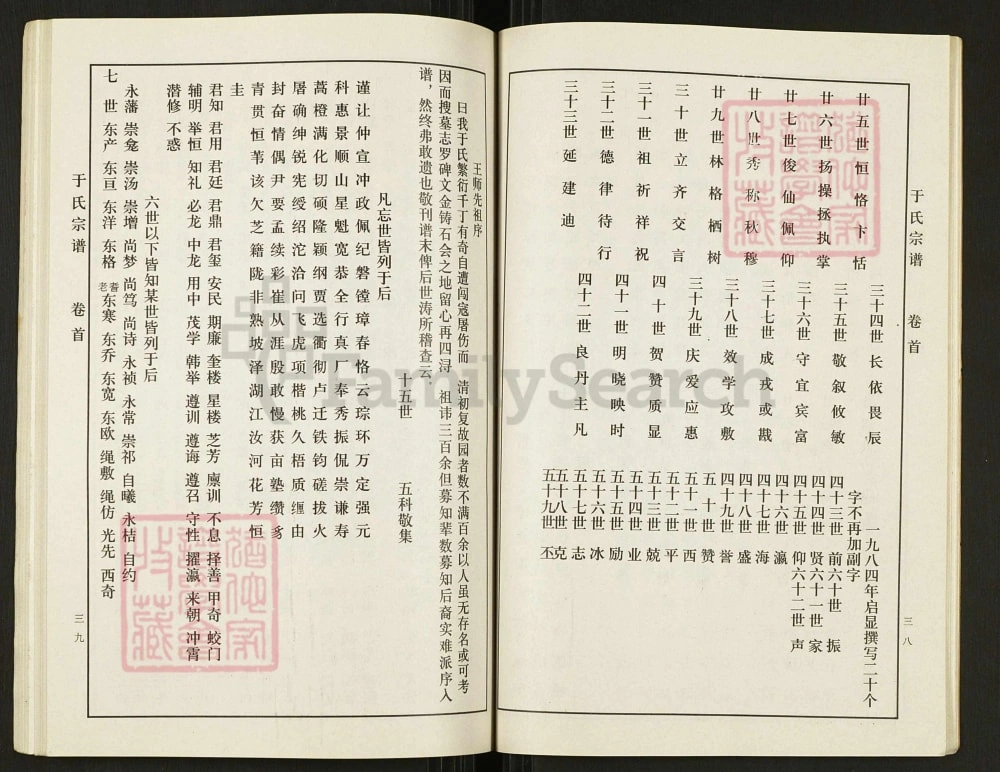 于氏宗谱 卷首
三八
廿五世恒恪卞恬
廿六世扬操拯执掌
廿七世俊仙佩仰
廿八世秀称秋穆
廿九世林格栖树
三十世立齐交言
三十一世祖祈祥祝
三十二世德律待行
三十三世延建迪
三十四世长依畏辰
三十五世敬叙攸敏
三十六世守宜宾富
三十七世成戎或戡
三十八世效学攻敷
三十九世庆爱应惠
四十世贺赞质显
四十一世明晓映时
四十二世良丹主凡
一九八四年启显撰写二十个
字不再加副字
四十三世前六十世振
四十四世贤六十一世家
四十五世仰六十二世声
四十六世瀛
四十七世海
四十八世盛
四十九世誉
五十世赞
五十一世西
五十二世平
五十三世兢
五十四世业
五十五世励
五十六世冰
五十七世志
五十八世克
五十九世丕
王师先祖序
曰我于氏繁衍千丁有奇自遭闯寇屠伤而 清初复故园者数不满百余以人虽无存名或可考
因而搜墓志罗碑文金铸石会之地留心再四浔 祖讳三百余但募知辈数募知后裔实难派序入
谱，然终弗敢遗也敬刊谱末俾后世涛所稽查云
十五世 五科敬集
凡忘世皆列于后
谨让仲宣冲政佩纪磐镗璋春恪云琮环万定强元
科惠景顺山星魁宽恭全行真厂奉秀振侃崇谦寿
蒿橙满化切硕隆颖纲贾选衢彻卢迁铁钧磋拔火
屠确绅锐宪绶绍沱洽问飞虎项楷桃久梧质缠由
封奋情偶尹要孟续彩崔从涯殷敢慢获亩塾缵豸
青贯恒苇该欠芝籍陇非熟坡泽湖江汝河花芳恒
圭
君知 君用 君廷 君鼎 君玺 安民 期廉 奎楼 星楼 芝芳 廪训 不息 择善 甲奇 蛟门
辅明 举恒 知礼 必龙 中龙 用中 茂学 韩举 遵训 遵诲 遵召 守性 擢瀛 来朝 冲霄
潜修 不惑
六世以下皆知某世皆列于后
永藩 崇龛 崇汤 崇增 尚梦 尚笃 尚诗 永祯 永常 崇祁 自曦 永桔 自约
七世 东产 东亘 东洋 东格 耆老东寒 东乔 东宽 东欧 绳敷 绳仿 光先 西奇
于氏宗谱 卷首
三九
FamilySearch